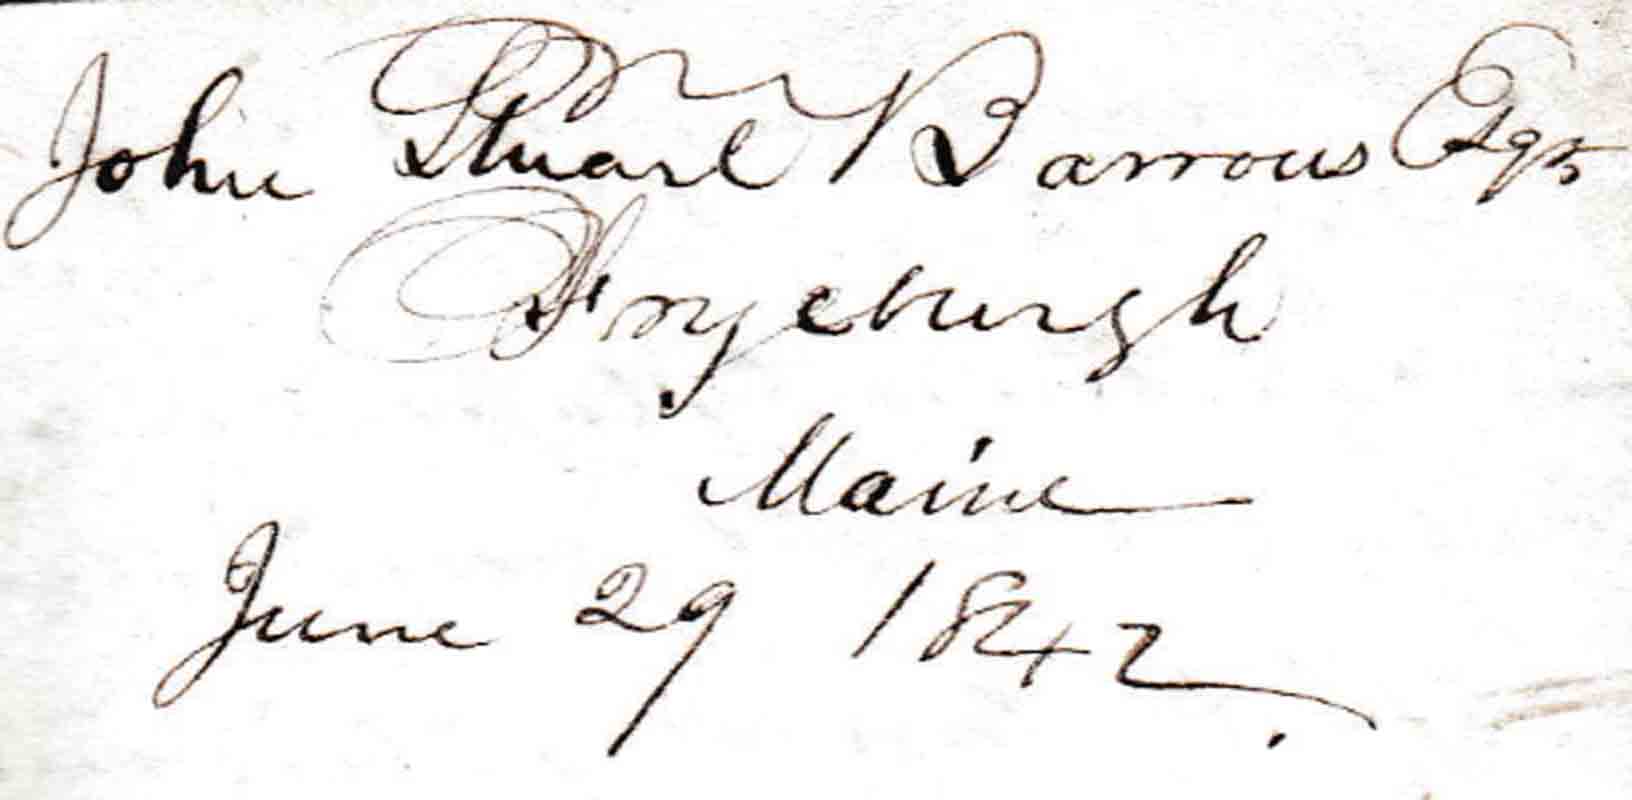 John Stuart Barrows Esqr
Fryeburgh
Maine
June 29 1842.